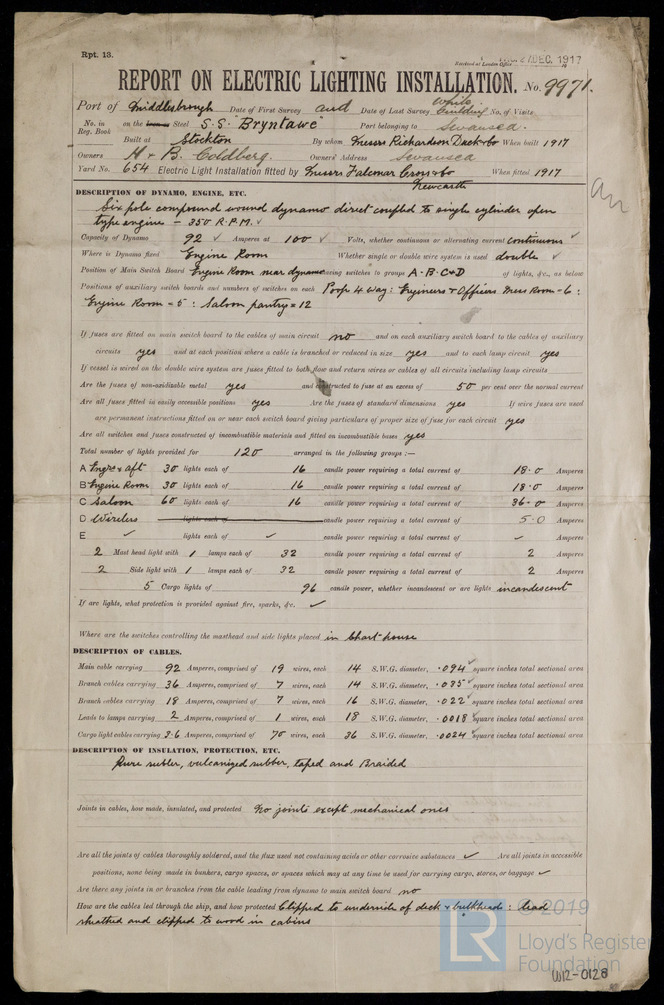 Rpt. 13.
Received at London Office 27 DEC. 1917
REPORT ON ELECTRIC LIGHTING INSTALLATION. No. 9971.
Port of Middlesbrough Date of First Survey and Date of Last Survey while building No. of Visits
No. in Reg. Book on the Iron or Steel S.S. "Bryntawe" Port belonging to Swansea.
Built at Stockton By whom Messrs Richardson Duck & Co When built 1917
Owners H & B. Goldberg. Owners' Address Swansea
Yard No. 654 Electric Light Installation fitted by Messrs Falconar Cross & Co Newcastle When fitted 1917
DESCRIPTION OF DYNAMO, ENGINE, ETC.
Six pole compound wound dynamo direct coupled to single cylinder open
type engine - 350 R.P.M. ✓
Capacity of Dynamo 92 ✓ Amperes at 100 ✓ Volts, whether continuous or alternating current continuous ✓
Where is Dynamo fixed Engine Room Whether single or double wire system is used double ✓
Position of Main Switch Board Engine Room near dynamo having switches to groups A-B-C & D of lights, &c., as below
Positions of auxiliary switch boards and numbers of switches on each Poop 4 way: Engineers & Officers Mess Room = 6:
Engine Room = 5: Saloon pantry = 12
If fuses are fitted on main switch board to the cables of main circuit no and on each auxiliary switch board to the cables of auxiliary
circuits yes and at each position where a cable is branched or reduced in size yes and to each lamp circuit yes
If vessel is wired on the double wire system are fuses fitted to both flow and return wires or cables of all circuits including lamp circuits
Are the fuses of non-oxidizable metal yes and constructed to fuse at an excess of 50 per cent over the normal current
Are all fuses fitted in easily accessible positions yes Are the fuses of standard dimensions yes If wire fuses are used
are permanent instructions fitted on or near each switch board giving particulars of proper size of fuse for each circuit yes
Are all switches and fuses constructed of incombustible materials and fitted on incombustible bases yes
Total number of lights provided for 120 arranged in the following groups :—
A Engrs & aft 30 lights each of 16 candle power requiring a total current of 18.0 Amperes
B Engine Room 30 lights each of 16 candle power requiring a total current of 18.0 Amperes
C Saloon 60 lights each of 16 candle power requiring a total current of 36.0 Amperes
D Wireless lights each of candle power requiring a total current of 5.0 Amperes
E ✓ lights each of ✓ candle power requiring a total current of ✓ Amperes
2 Mast head light with 1 lamps each of 32 candle power requiring a total current of 2 Amperes
2 Side light with 1 lamps each of 32 candle power requiring a total current of 2 Amperes
5 Cargo lights of 96 candle power, whether incandescent or arc lights incandescent
If arc lights, what protection is provided against fire, sparks, &c. ✓
Where are the switches controlling the masthead and side lights placed in Chart-house
DESCRIPTION OF CABLES.
Main cable carrying 92 Amperes, comprised of 19 wires, each 14 S.W.G. diameter, .094 ✓ square inches total sectional area
Branch cables carrying 36 Amperes, comprised of 7 wires, each 14 S.W.G. diameter, .035 ✓ square inches total sectional area
Branch cables carrying 18 Amperes, comprised of 7 wires, each 16 S.W.G. diameter, .022 ✓ square inches total sectional area
Leads to lamps carrying 2 Amperes, comprised of 1 wires, each 18 S.W.G. diameter, .0018 ✓ square inches total sectional area
Cargo light cables carrying 3.6 Amperes, comprised of 70 wires, each 36 S.W.G. diameter, .0024 ✓ square inches total sectional area
DESCRIPTION OF INSULATION, PROTECTION, ETC.
Pure rubber, vulcanized rubber, taped and Braided
Joints in cables, how made, insulated, and protected No joints except mechanical ones
Are all the joints of cables thoroughly soldered, and the flux used not containing acids or other corrosive substances ✓ Are all joints in accessible
positions, none being made in bunkers, cargo spaces, or spaces which may at any time be used for carrying cargo, stores, or baggage ✓
Are there any joints in or branches from the cable leading from dynamo to main switch board no
How are the cables led through the ship, and how protected Clipped to underside of deck & bulkheads: lead
sheathed and clipped to wood in cabins
© 2019
LR
Lloyd's Register
Foundation
W12-0128